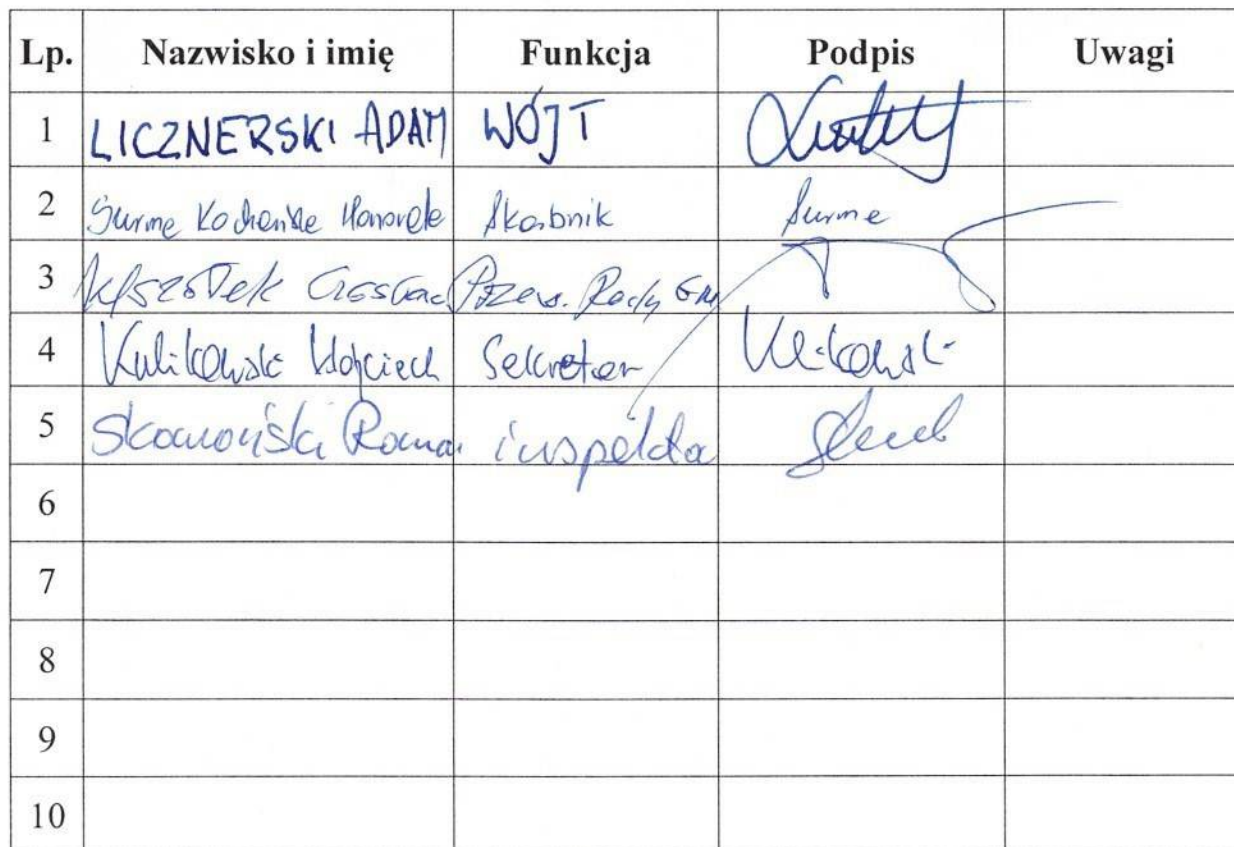 Lp. Nazwisko i imię Funkcja Podpis Uwagi
1 LICZNERSKI ADAM WÓJT
2 Surma Kochańska Honorata Skarbnik Surma
3 Przew. Rady GM
4 Kulikowski Wojciech Sekretarz
5 Skamoński Roma inspekto
6
7
8
9
10